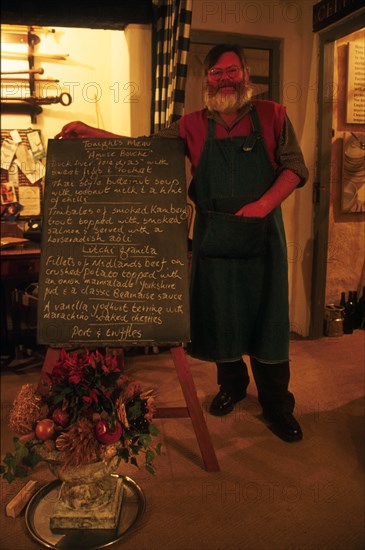 Tonights Menu
"Amuse Bouche"
"sweet" &
Thai style butternut soup
with coconut milk & a hint
of chilli
Timbales of smoked Kamberg
trout topped with smoked
salmon & served with a
horseradish aoli
Litchi granita
Fillets of Midlands beef on
crushed potato topped with
an onion marmalade Yorkshire
pud & a classic Bearnaise sauce
A vanilla yoghurt terrine with
marachino soaked cherries
Port & truffles